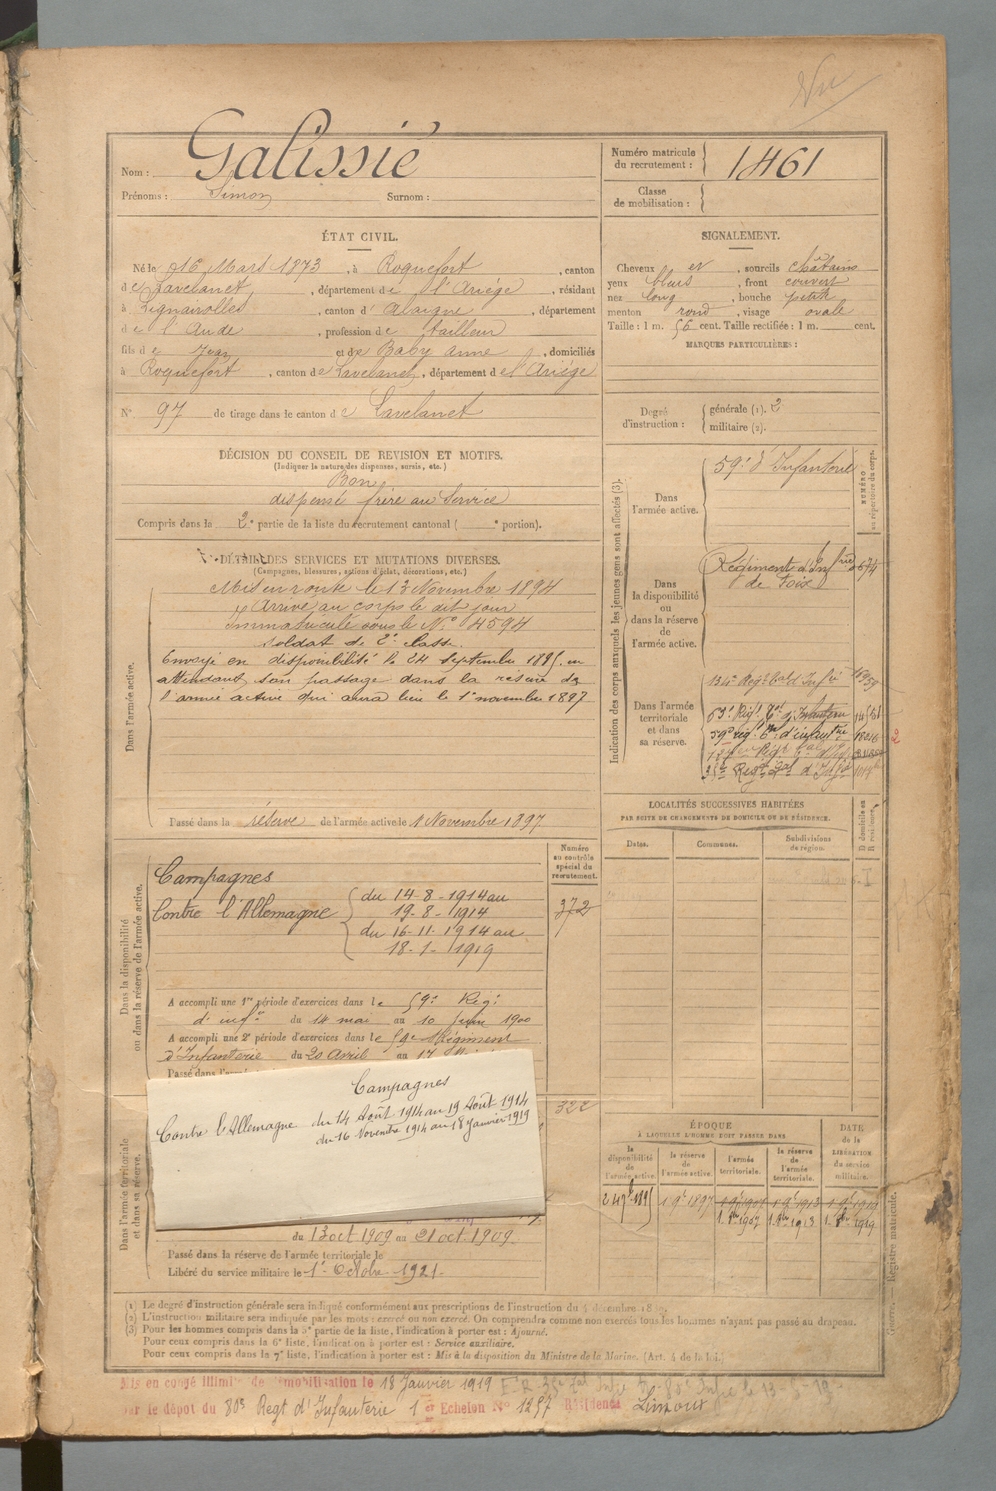 Vu
Nom : Galissié
Prénoms : Simon Surnom :
Numéro matricule du recrutement : 1461
Classe de mobilisation :
ÉTAT CIVIL.
Né le 16 Mars 1873, à Roquefort, canton
de Lavelanet, département de l'Ariége, résidant
à Lignairolles, canton d'Alaigne, département
de l'Aude, profession de tailleur
fils de Jean et de Baby Anne, domiciliés
à Roquefort, canton de Lavelanet, département de l'Ariége
N° 97 de tirage dans le canton de Lavelanet
SIGNALEMENT.
Cheveux et, sourcils châtains
yeux bleus, front couvert
nez long, bouche petite
menton rond, visage ovale
Taille : 1 m. 56 cent. Taille rectifiée : 1 m. cent.
MARQUES PARTICULIÈRES :
Degré d'instruction : générale (1). 2
militaire (2).
DÉCISION DU CONSEIL DE REVISION ET MOTIFS.
(Indiquer la nature des dispenses, sursis, etc.)
Bon
dispensé frère au Service
Compris dans la 2e partie de la liste du recrutement cantonal ( e portion).
DÉTAIL DES SERVICES ET MUTATIONS DIVERSES.
(Campagnes, blessures, actions d'éclat, décorations, etc.)
Dans l'armée active.
Mis en route le 13 Novembre 1894
Arrivé au corps le dit jour
Immatriculé sous le N° 4594
Soldat de 2e classe
Envoyé en disponibilité le 24 Septembre 1895 en
attendant son passage dans la réserve de
l'armée active qui aura lieu le 1er novembre 1897
Passé dans la réserve de l'armée active le 1 Novembre 1897
Indication des corps auxquels les jeunes gens sont affectés (3).
NUMÉRO au répertoire du corps.
Dans l'armée active.
59e d'Infanterie
Dans la disponibilité ou dans la réserve de l'armée active.
Régiment d'Infrie 0674
de Foix
Dans l'armée territoriale et dans sa réserve.
134e Régt
59e régt d'infantrie
LOCALITÉS SUCCESSIVES HABITÉES
PAR SUITE DE CHANGEMENTS DE DOMICILE OU DE RÉSIDENCE.
Dates. Communes. Subdivisions de région. D domicile ou R résidence.
Dans la disponibilité ou dans la réserve de l'armée active.
Numéro au contrôle spécial du recrutement.
Campagnes
Contre l'Allemagne du 14-8-1914 au
19-8-1914
du 16-11-1914 au
18-1-1919
372
A accompli une 1re période d'exercices dans le 59e Régt
d'infrie du 14 mai au 10 juin 1900
A accompli une 2e période d'exercices dans le 59e Régiment
d'Infanterie du 20 Avril au 17
Passé dans l'armée
Campagnes
Contre l'Allemagne du 14 Août 1914 au 19 Août 1914
du 16 Novembre 1914 au 18 Janvier 1919
322
Dans l'armée territoriale et dans sa réserve.
du 13 oct 1909 au 21 oct 1909.
Passé dans la réserve de l'armée territoriale le
Libéré du service militaire le 1er Octobre 1921.
ÉPOQUE
À LAQUELLE L'HOMME DOIT PASSER DANS
la disponibilité de l'armée active. la réserve de l'armée active. l'armée territoriale. la réserve de l'armée territoriale. DATE de la LIBÉRATION du service militaire.
1897 1907 1913 1919
1907 1913 1919
Guerre. — Registre matricule.
(1) Le degré d'instruction générale sera indiqué conformément aux prescriptions de l'instruction du 4 décembre
(2) L'instruction militaire sera indiquée par les mots : exercé ou non exercé. On comprendra comme non exercés tous les hommes n'ayant pas passé au drapeau.
(3) Pour les hommes compris dans la 5e partie de la liste, l'indication à porter est : Ajourné.
Pour ceux compris dans la 6e liste, l'indication à porter est : Service auxiliaire.
Pour ceux compris dans la 7e liste, l'indication à porter est : Mis à la disposition du Ministre de la Marine. (Art. 4 de la loi.)
Mis en congé illimité de démobilisation le 18 Janvier 1919
par le dépôt du 80e Regt d'Infanterie 1er Echelon N° 1257 Résidence Limoux